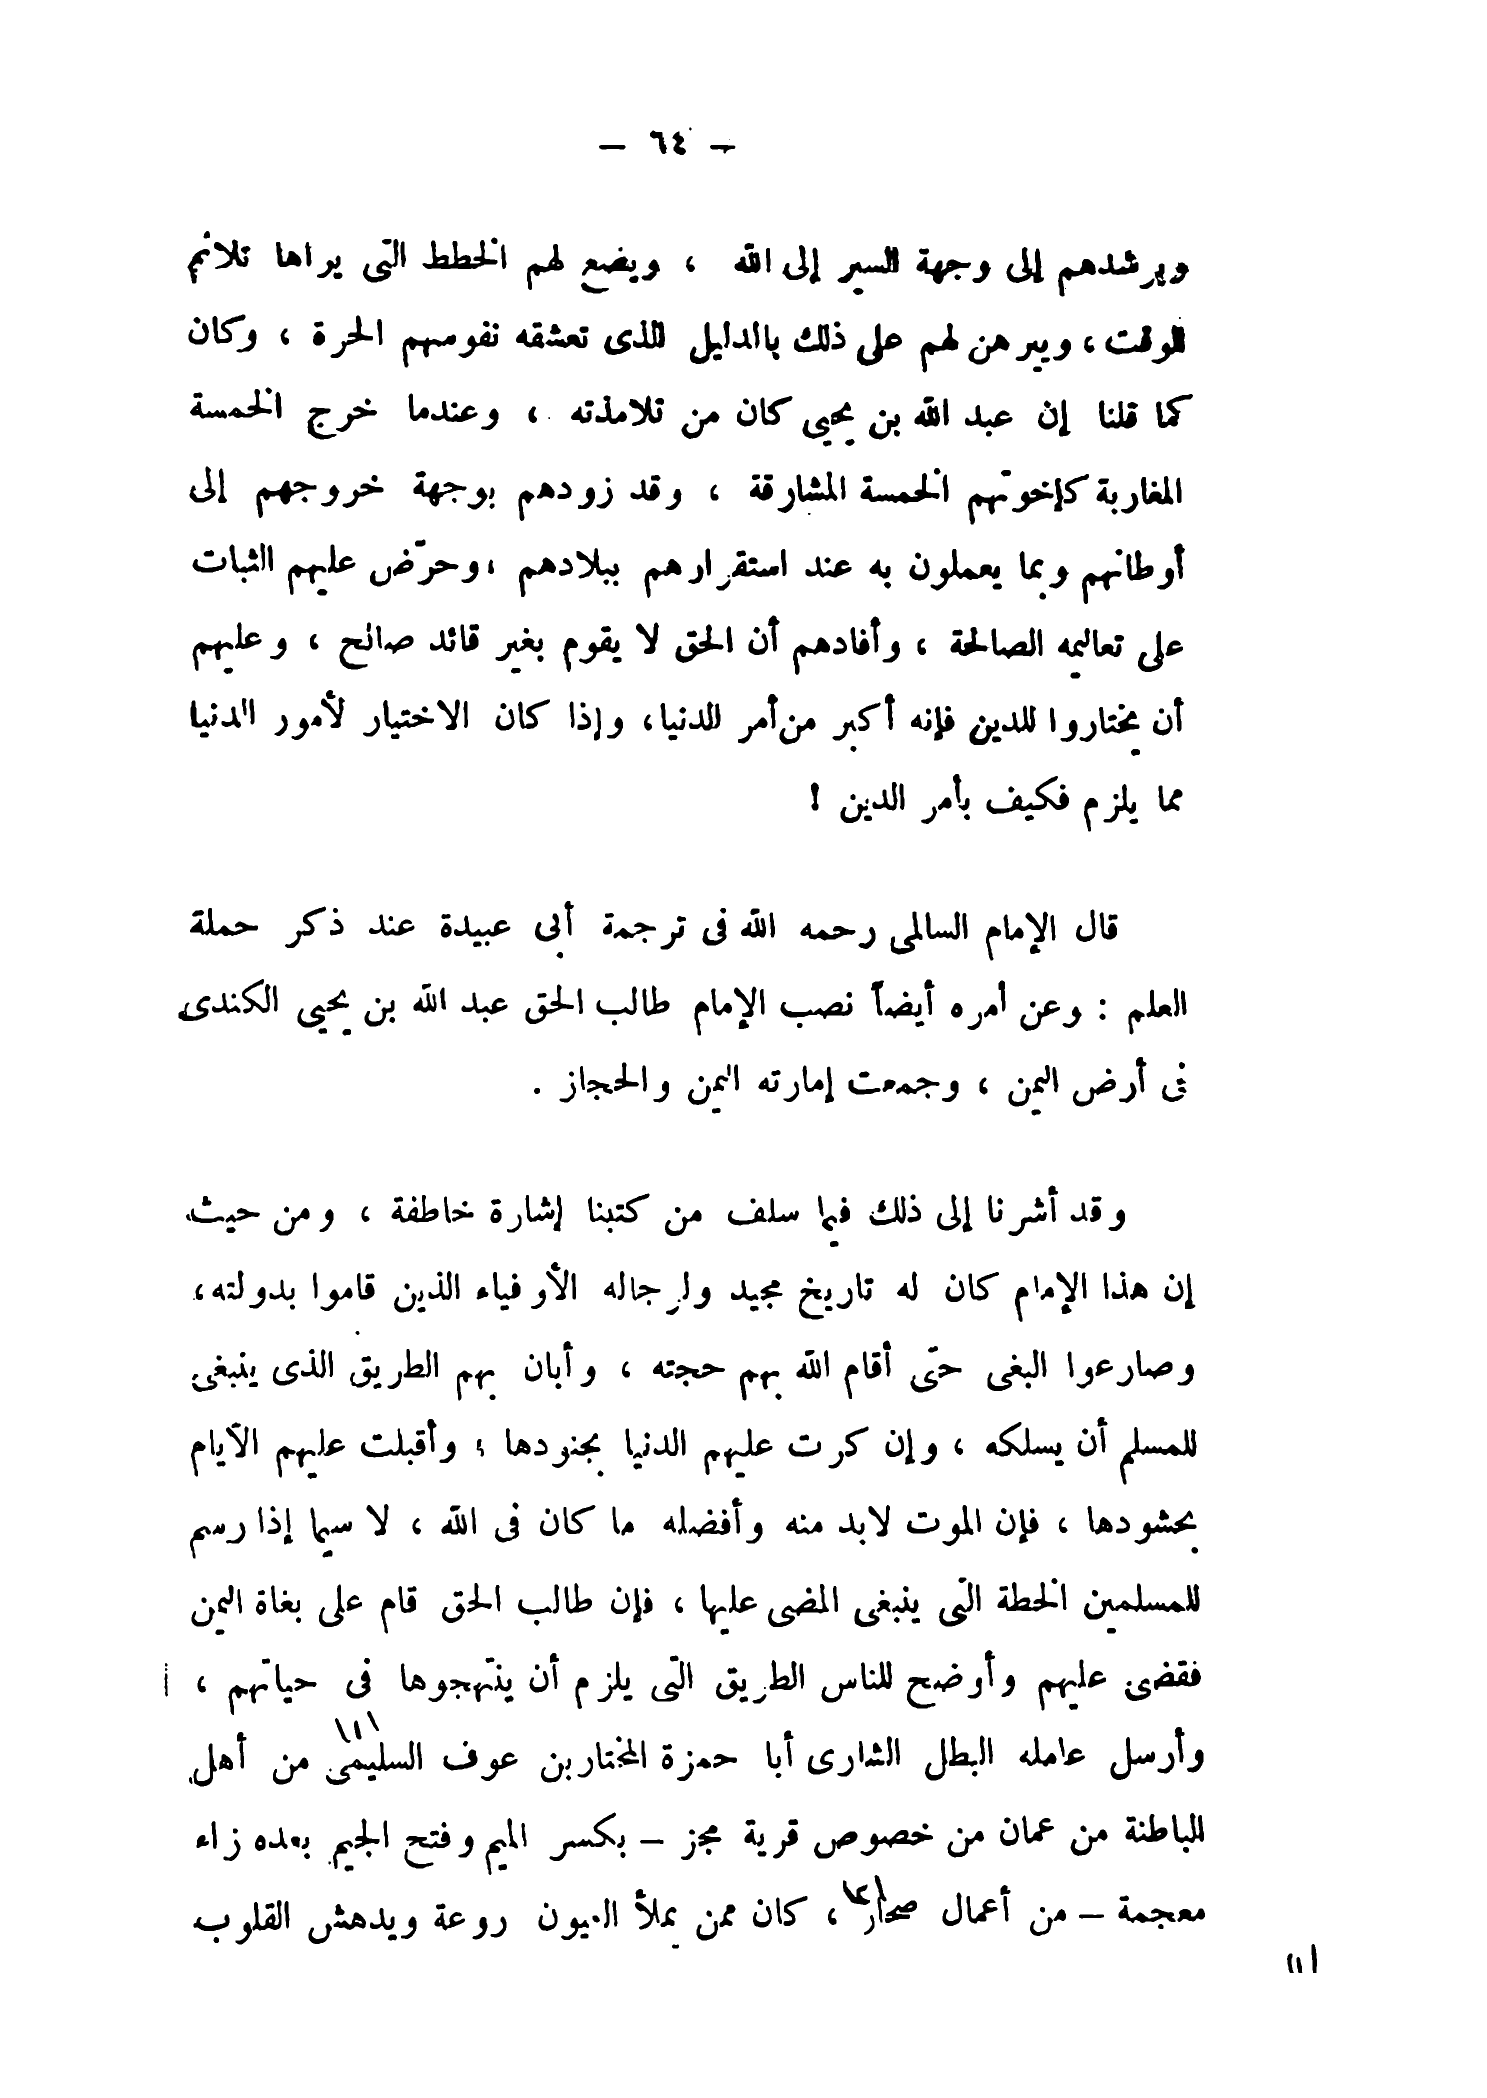 — ٦٤ —
ويرشدهم إلى وجهة السير إلى الله ، ويضع لهم الخطط التى يراها تلائم
الوقت ، ويبرهن لهم على ذلك بالدليل الذى تعشقه نفوسهم الحرة ، وكان
كما قلنا إن عبد الله بن يحيى كان من تلامذته ، وعندما خرج الخمسة
المغاربة كإخوتهم الخمسة المشارقة ، وقد زودهم بوجهة خروجهم إلى
أوطانهم وبما يعملون به عند استقرارهم ببلادهم ،وحرّض عليهم الثبات
على تعاليمه الصالحة ، وأفادهم أن الحق لا يقوم بغير قائد صالح ، وعليهم
أن يختاروا للدين فإنه أكبر من أمر الدنيا، وإذا كان الاختيار لأمور الدنيا
مما يلزم فكيف بأمر الدين !
قال الإمام السالمى رحمه الله فى ترجمة أبى عبيدة عند ذكر حملة
العلم : وعن أمره أيضاً نصب الإمام طالب الحق عبد الله بن يحيى الكندى
فى أرض اليمن ، وجمعت إمارته اليمن والحجاز .
وقد أشرنا إلى ذلك فيما سلف من كتبنا إشارة خاطفة ، ومن حيث
إن هذا الإمام كان له تاريخ مجيد ولرجاله الأوفياء الذين قاموا بدولته،
وصارعوا البغى حتى أقام الله بهم حجته ، وأبان بهم الطريق الذى ينبغى
للمسلم أن يسلكه ، وإن كرت عليهم الدنيا بجنودها ؛ وأقبلت عليهم الأيام
بحشودها ، فإن الموت لابد منه وأفضله ما كان فى الله ، لا سيما إذا رسم
للمسلمين الخطة التى ينبغى المضى عليها ، فإن طالب الحق قام على بغاة اليمن
فقضى عليهم وأوضح للناس الطريق التى يلزم أن ينتهجوها فى حياتهم ،
وأرسل عامله البطل الشارى أبا حمزة المختار بن عوف السليمى \١\ من أهل
الباطنة من عمان من خصوص قرية مجز – بكسر الميم وفتح الجيم بعده زاء
معجمة – من أعمال صحار \٢\ ، كان ممن يملأ العيون روعة ويدهش القلوب